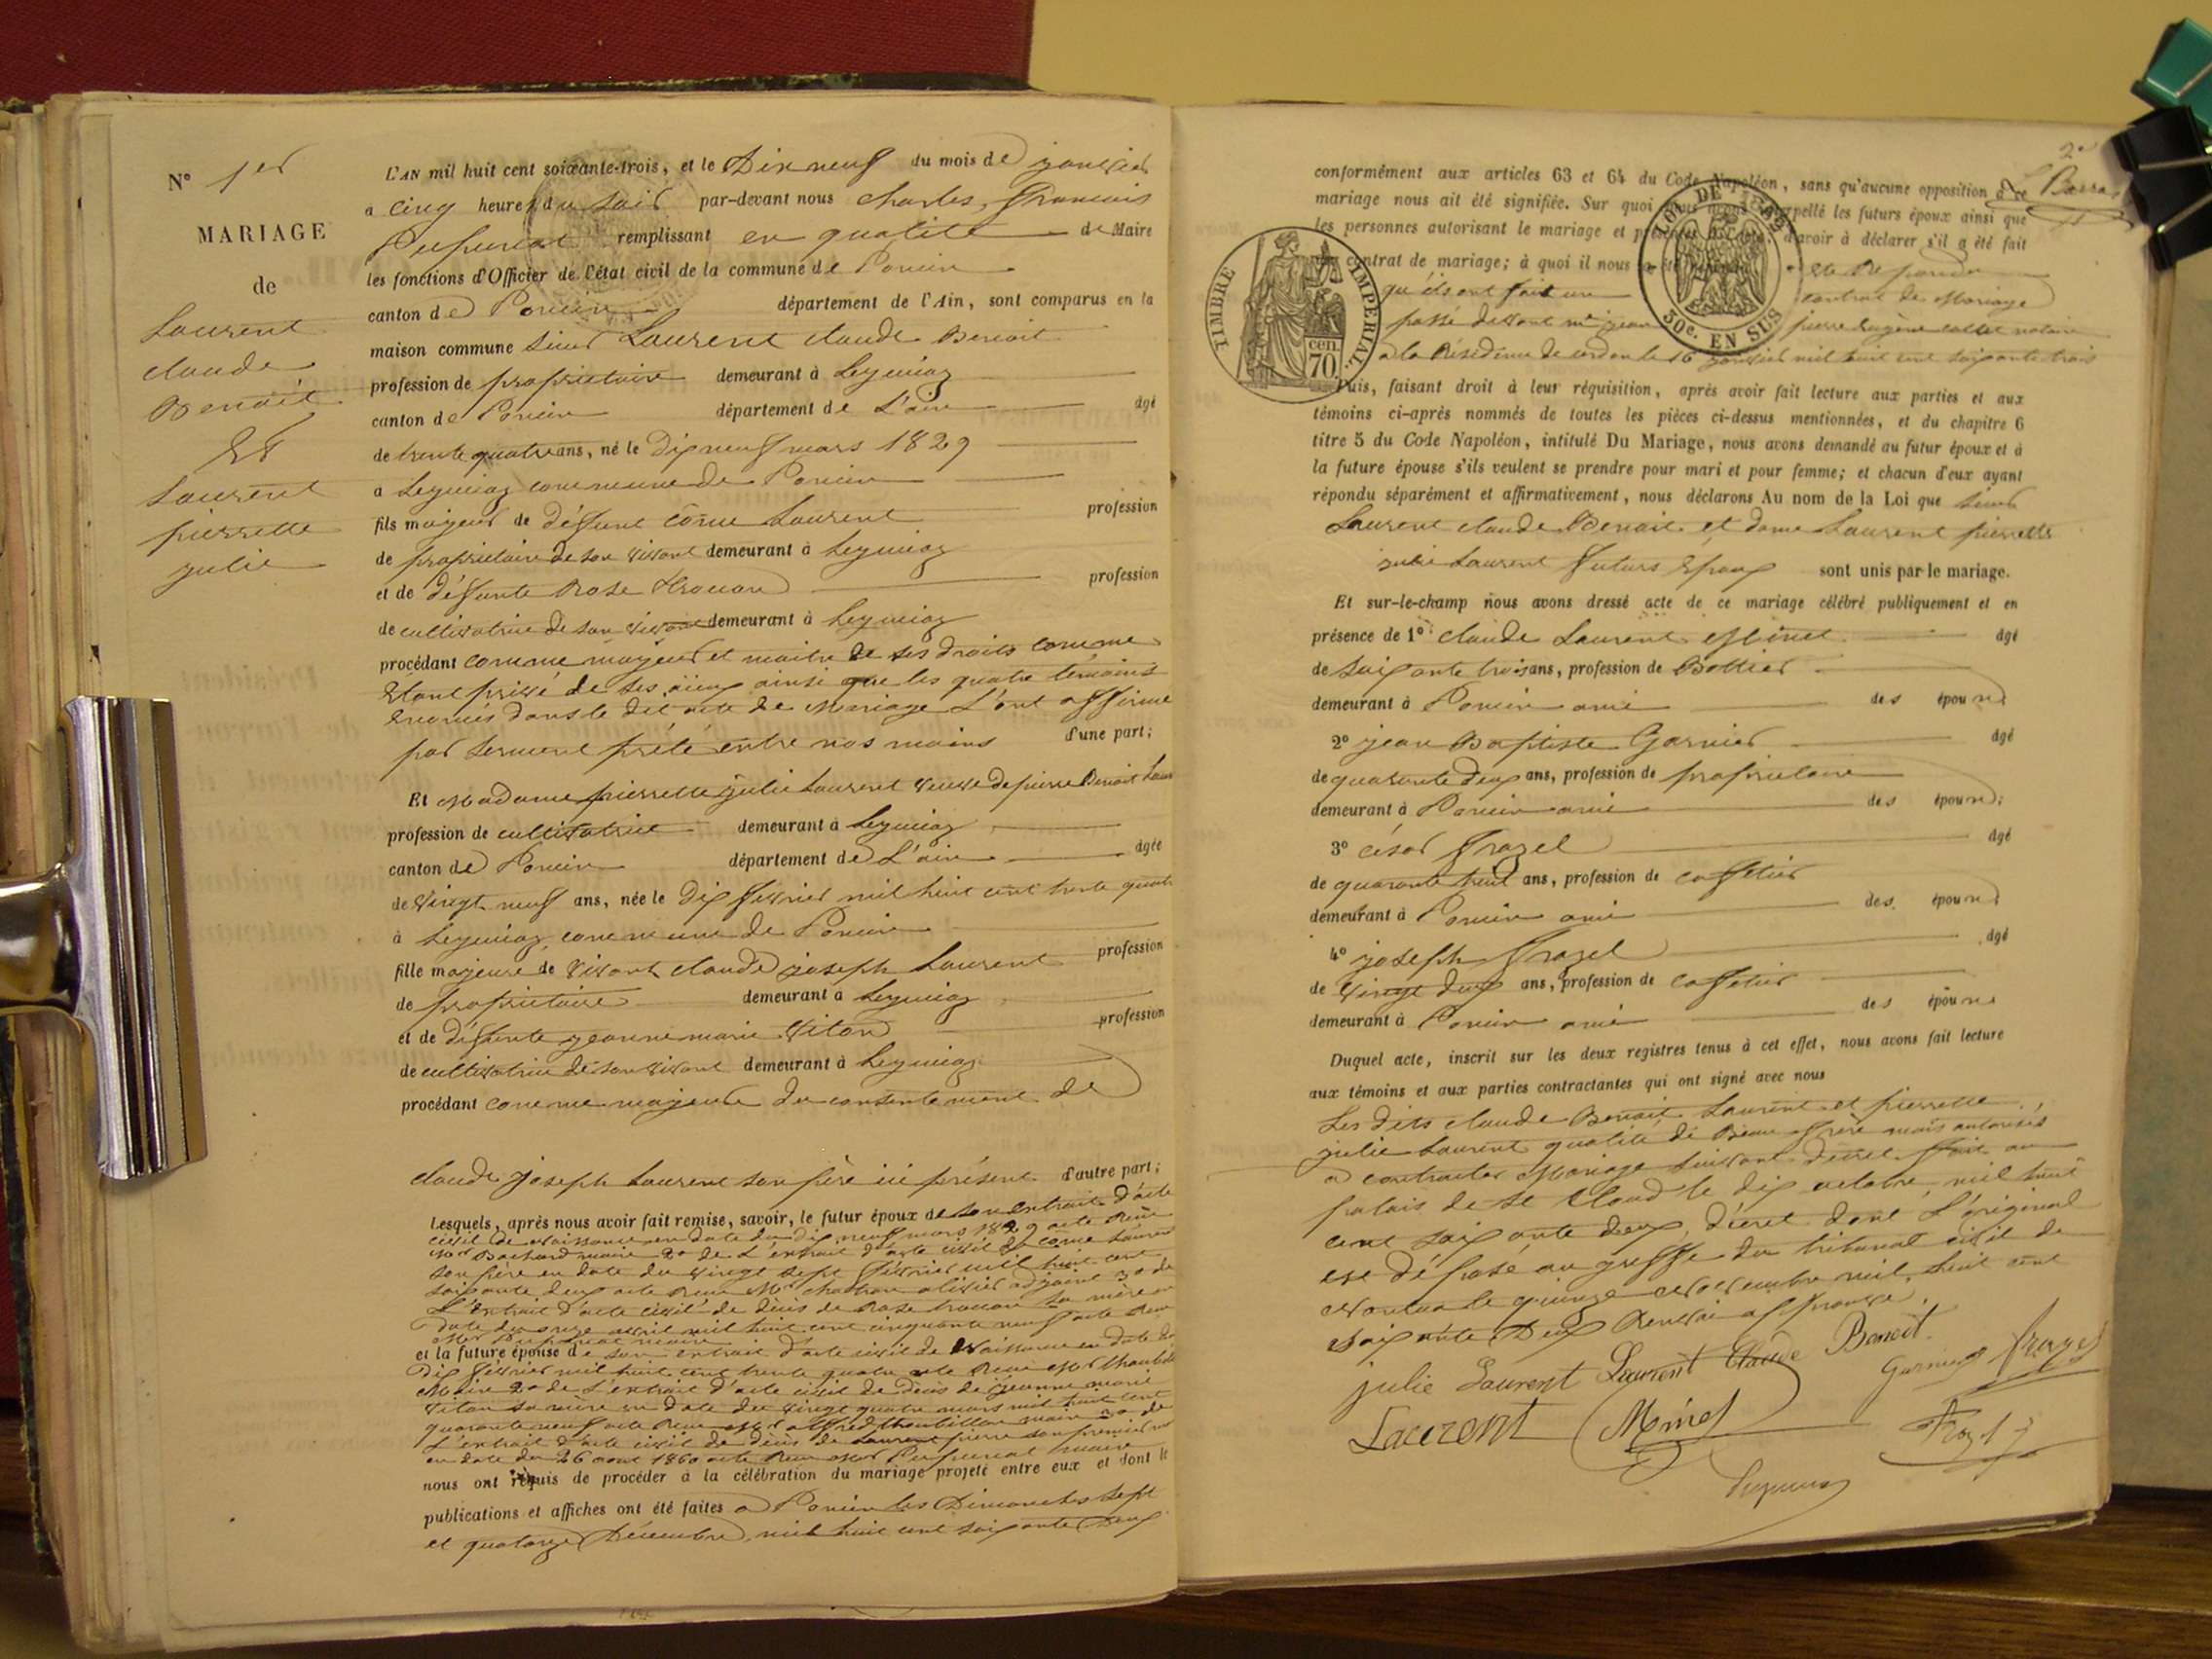 N° 1er
MARIAGE
de
Laurent
claude
Benoit
Et
Laurent
pierrette
julie
L'AN mil huit cent soixante-trois, et le Dix neuf du mois de janvier
a cinq heures du soir par-devant nous charles, francois
remplissant en qualité de Maire
les fonctions d'Officier de l'état civil de la commune de Poncin
canton de Poncin département de l'Ain, sont comparus en la
maison commune sieur Laurent claude Benoit
profession de propriétaire demeurant à Leymiaz
canton de Poncin département de L'ain âgé
de trente quatre ans, né le dix neuf mars 1829
a Leymiaz commune de Poncin
fils majeur de défunt Côme Laurent profession
de propriétaire de son vivant demeurant à Leymiaz
et de défunte Rose profession
de cultivatrice de son vivant demeurant à Leymiaz
procédant comme majeur et maitre de ses droits comme
Etant privé de ses aieux ainsi que les quatre témoins
dans le dit acte de Mariage L'ont affirmé
par serment prêté entre nos mains d'une part;
Et Madame pierrette julie Laurent veuve de pierre Benoit
profession de cultivatrice demeurant à Leymiaz
canton de Poncin département de L'ain âgée
de vingt neuf ans, née le dix février mil huit cent trente quatre
à Leymiaz commune de Poncin
fille majeure de vivant claude joseph Laurent profession
de propriétaire demeurant à Leymiaz
et de défunte jeanne marie Vitton profession
de cultivatrice de son vivant demeurant à Leymiaz
procédant comme majeure du consentement de
claude joseph Laurent son père ici présent d'autre part;
Lesquels, après nous avoir fait remise, savoir, le futur époux de son extrait d'acte
civil de naissance en date du dix neuf mars 1829 acte Reçu
maire 2° de L'extrait d'acte civil de Côme Laurent
son père en date du vingt sept février mil huit cent
soixante deux acte Reçu adjoint 3° de
L'extrait d'acte civil de décès de Rose sa mère en
date du onze avril mil huit cent cinquante neuf acte Reçu
maire
et la future épouse de son extrait d'acte civil de Naissance en date du
Dix février mil huit cent trente quatre acte Reçu
Maire 2° de L'extrait d'acte civil de décès de jeanne marie
Vitton sa mère en date du vingt quatre mars mil huit cent
quarante neuf acte Reçu maire 3° de
L'extrait d'acte civil de décès de Laurent pierre son premier
en date du 26 aout 1860 acte Reçu maire
nous ont requis de procéder à la célébration du mariage projeté entre eux et dont les
publications et affiches ont été faites a Poncin les Dimanches sept
et quatorze Décembre mil huit cent soixante Deux
conformément aux articles 63 et 64 du Code Napoléon, sans qu'aucune opposition à ce
mariage nous ait été signifiée. Sur quoi nous avons interpellé les futurs époux ainsi que
les personnes autorisant le mariage et présentes d'avoir à déclarer s'il a été fait
contrat de mariage; à quoi il nous a été Répondu
qu'ils ont fait un contrat de Mariage
passé devant me jean pierre Eugène notaire
à la Résidence de cerdon le 16 janvier mil huit cent soixante trois
TIMBRE IMPÉRIAL
cen
70
LOI DE 1862
30c. EN SUS
Puis, faisant droit à leur réquisition, après avoir fait lecture aux parties et aux
témoins ci-après nommés de toutes les pièces ci-dessus mentionnées, et du chapitre 6
titre 5 du Code Napoléon, intitulé Du Mariage, nous avons demandé au futur époux et à
la future épouse s'ils veulent se prendre pour mari et pour femme; et chacun d'eux ayant
répondu séparément et affirmativement, nous déclarons Au nom de la Loi que sieur
Laurent claude Benoit et dame Laurent pierrette
julie Laurent futurs Epoux sont unis par le mariage.
Et sur-le-champ nous avons dressé acte de ce mariage célébré publiquement et en
présence de 1° claude Laurent Minet âgé
de soixante trois ans, profession de Bottier
demeurant à Poncin ami des époux
2° jean Baptiste Garnier âgé
de quarante deux ans, profession de propriétaire
demeurant à Poncin ami des époux;
3° césar frazel âgé
de quarante huit ans, profession de caffetier
demeurant à Poncin ami des époux
4° joseph frazel âgé
de vingt deux ans, profession de caffetier
demeurant à Poncin ami des époux
Duquel acte, inscrit sur les deux registres tenus à cet effet, nous avons fait lecture
aux témoins et aux parties contractantes qui ont signé avec nous
Les dits claude Benoit Laurent et pierrette
julie Laurent qualité de Beau frère mais autorisés
a contracter Mariage suivant décret fait au
palais de St Cloud le dix octobre mil huit
cent soixante deux, décret dont L'original
est déposé au greffe du tribunal civil de
Nantua le quinze novembre mil huit cent
soixante Deux
julie Laurent Laurent Claude Benoit
Garnier frazel
Laurent Minet Frazel